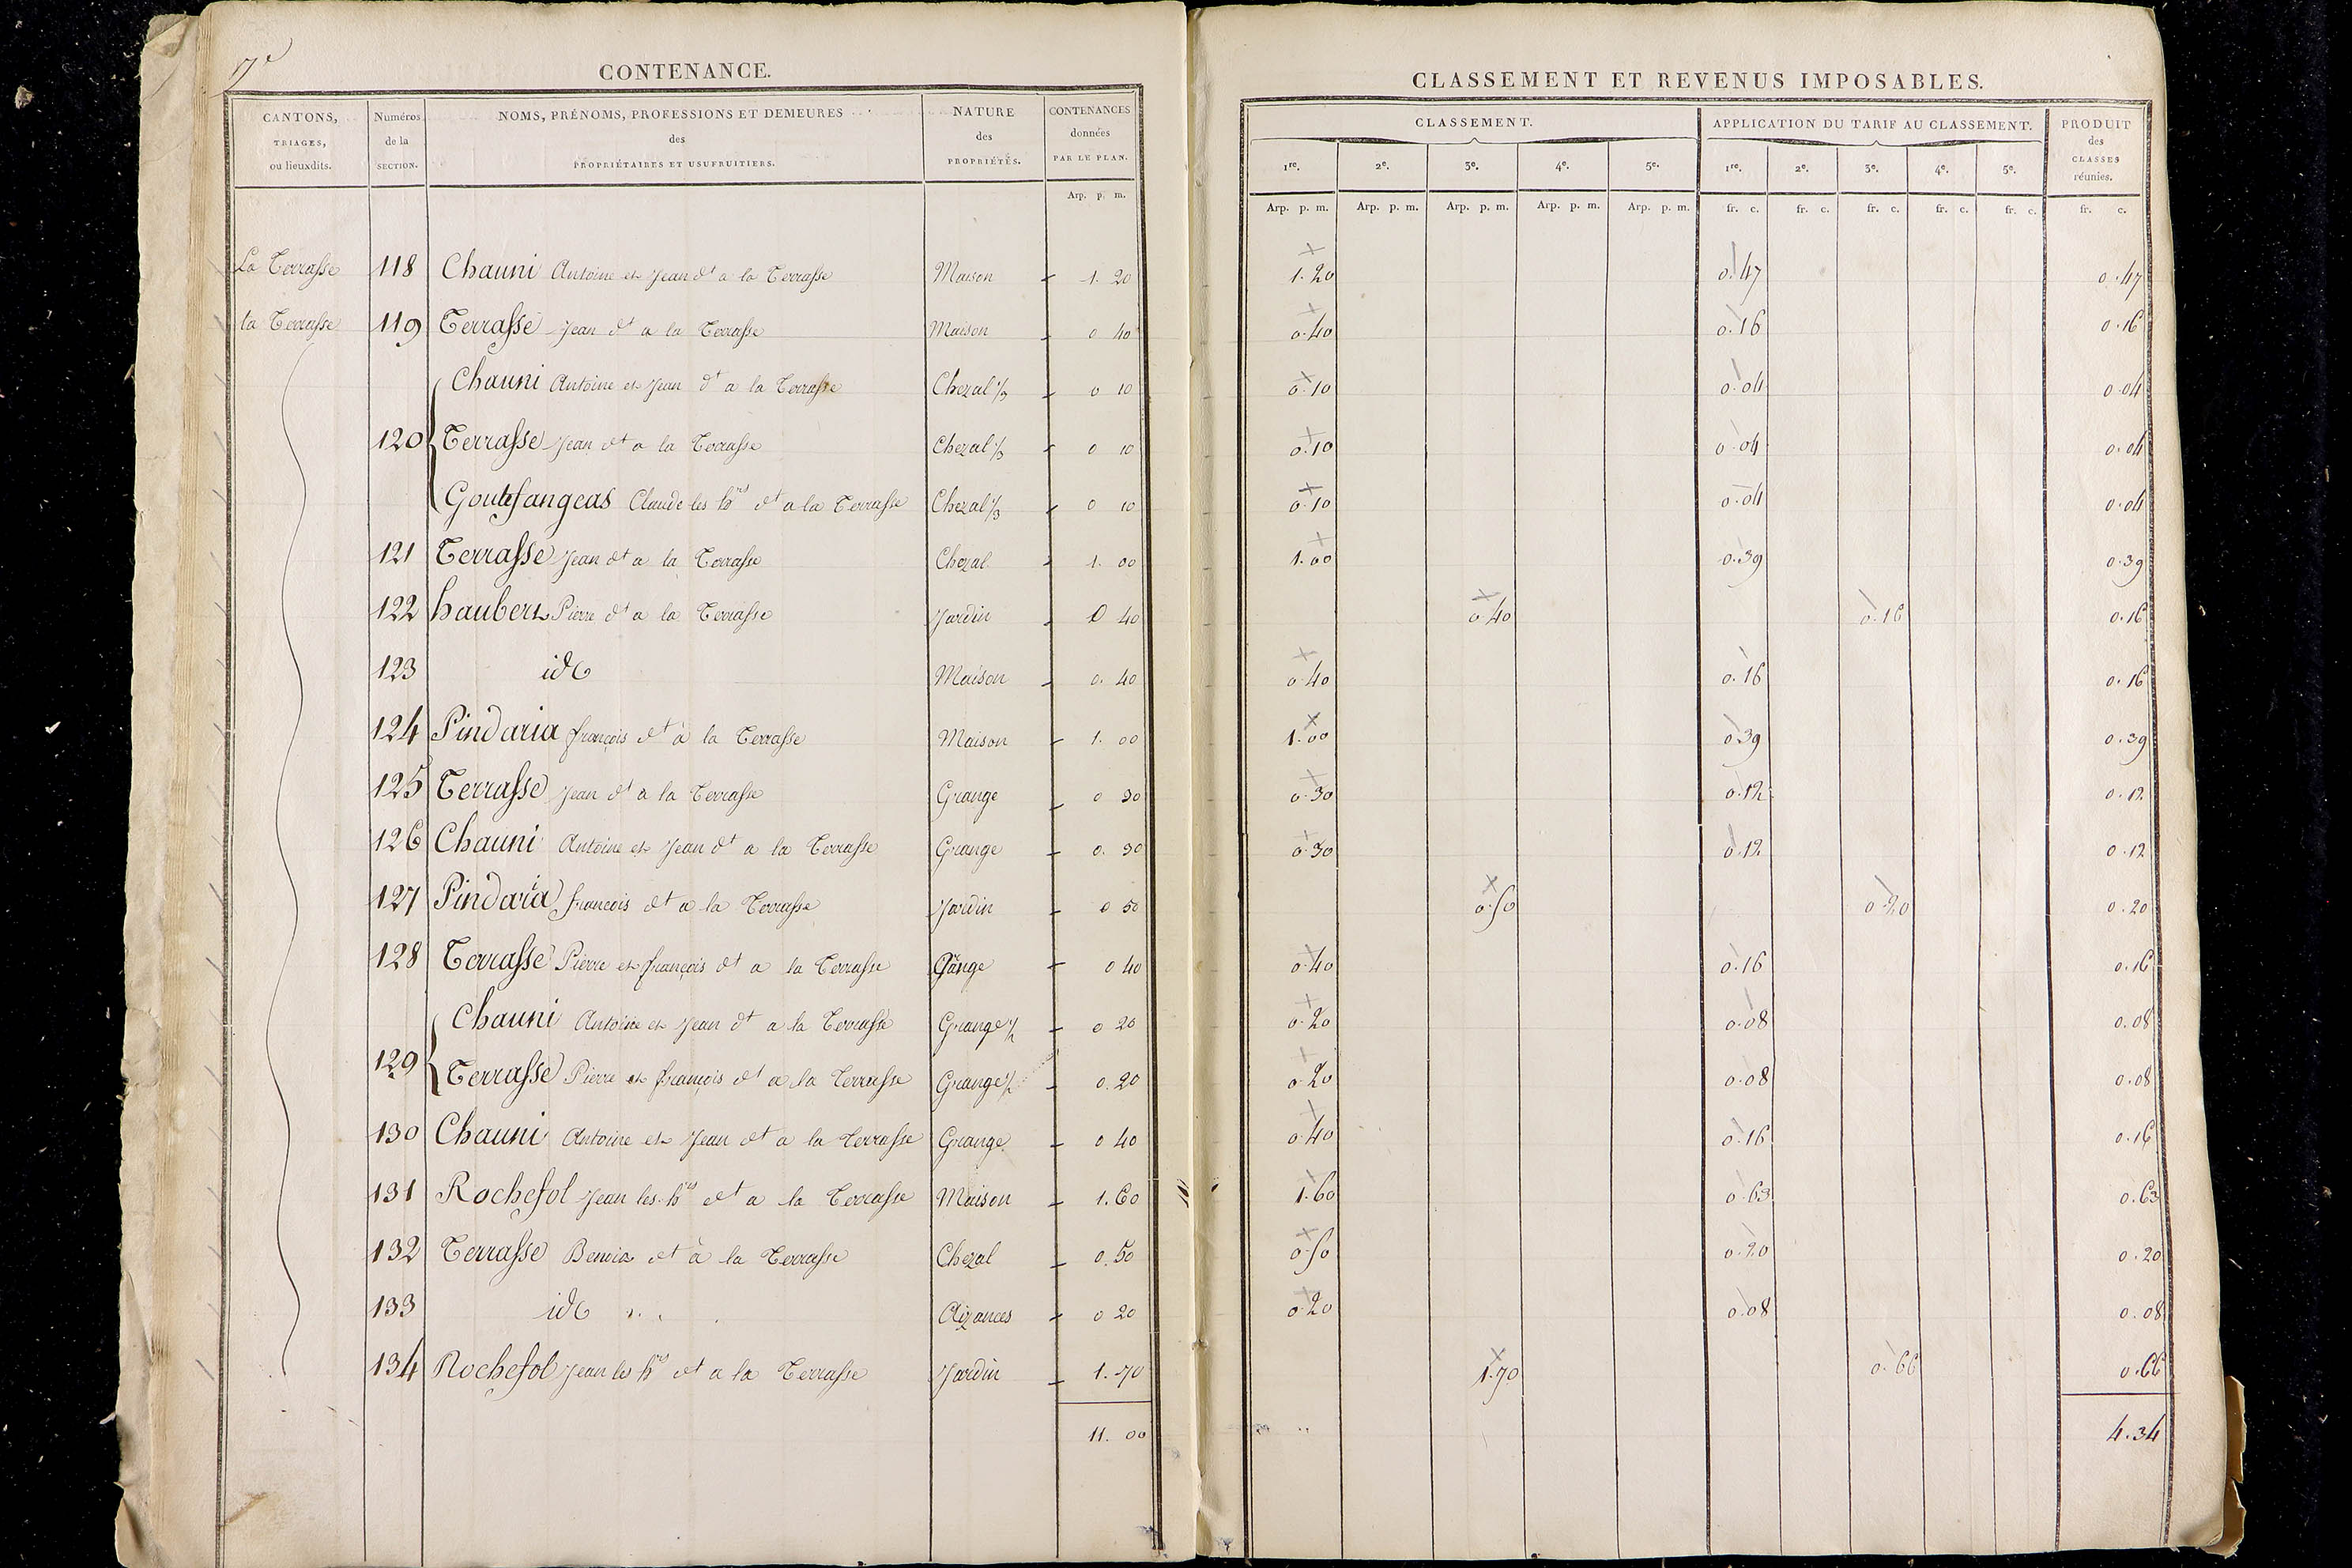 17e
CONTENANCE.
CANTONS, TRIAGES, ou lieuxdits.
Numéros de la SECTION.
NOMS, PRÉNOMS, PROFESSIONS ET DEMEURES des PROPRIÉTAIRES ET USUFRUITIERS.
NATURE des PROPRIÉTÉS.
CONTENANCES données PAR LE PLAN.
Arp. p. m.
La Terrasse 118 Chauni Antoine et Jean dt a la Terrasse Maison 1. 20
la Terrasse 119 Terrasse Jean dt a la Terrasse Maison 0 40
Chauni Antoine et Jean dt a la Terrasse Chezal 1/3 0 10
120 Terrasse Jean dt a la Terrasse Chezal 1/3 0 10
Goutefangeas Claude les hrs dt a la Terrasse Chezal 1/3 0 10
121 Terrasse Jean dt a la Terrasse Chezal 1. 00
122 haubert Pierre dt a la Terrasse Jardin 0 40
123 id Maison 0. 40
124 Pindaria françois dt à la Terrasse Maison 1. 00
125 Terrasse Jean dt a la Terrasse Grange 0 30
126 Chauni Antoine et Jean dt a la Terrasse Grange 0. 30
127 Pindaria francois dt a la Terrasse Jardin 0 50
128 Terrasse Pierre et françois dt a la Terrasse Grange 0 40
Chauni Antoine et Jean dt a la Terrasse Grange 1/2 0 20
129 Terrasse Pierre et françois dt a la Terrasse Grange 1/2 0. 20
130 Chauni Antoine et Jean dt a la Terrasse Grange 0 40
131 Rochefol Jean les hrs dt a la Terrasse Maison 1. 60
132 Terrasse Benoit dt à la Terrasse Chezal 0. 50
133 id Aizances 0 20
134 Rochefol Jean les hrs dt a la Terrasse Jardin 1. 70
11. 00
CLASSEMENT ET REVENUS IMPOSABLES.
CLASSEMENT.
APPLICATION DU TARIF AU CLASSEMENT.
PRODUIT des CLASSES réunies.
1re. 2e. 3e. 4e. 5e. 1re. 2e. 3e. 4e. 5e.
Arp. p. m. Arp. p. m. Arp. p. m. Arp. p. m. Arp. p. m. fr. c. fr. c. fr. c. fr. c. fr. c. fr. c.
1. 20 0. 47 0. 47
0. 40 0. 16 0. 16
0. 10 0. 04 0. 04
0. 10 0. 04 0. 04
0. 10 0. 04 0. 04
1. 00 0. 39 0. 39
0. 40 0. 16 0. 16
0. 40 0. 16 0. 16
1. 00 0 39 0. 39
0. 30 0. 12 0. 12
0. 30 0. 12 0. 12
0. 50 0. 20 0. 20
0. 40 0. 16 0. 16
0. 20 0. 08 0. 08
0. 20 0. 08 0. 08
0. 40 0. 16 0. 16
1. 60 0. 63 0. 63
0. 50 0. 20 0. 20
0. 20 0. 08 0. 08
1. 70 0. 66 0. 66
4. 34